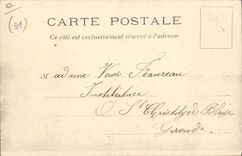 (31)
CARTE POSTALE
Ce côté est exclusivement réservé à l'adresse
Madame Veuve
Institutrice
St Christoly de Blaye
Gironde